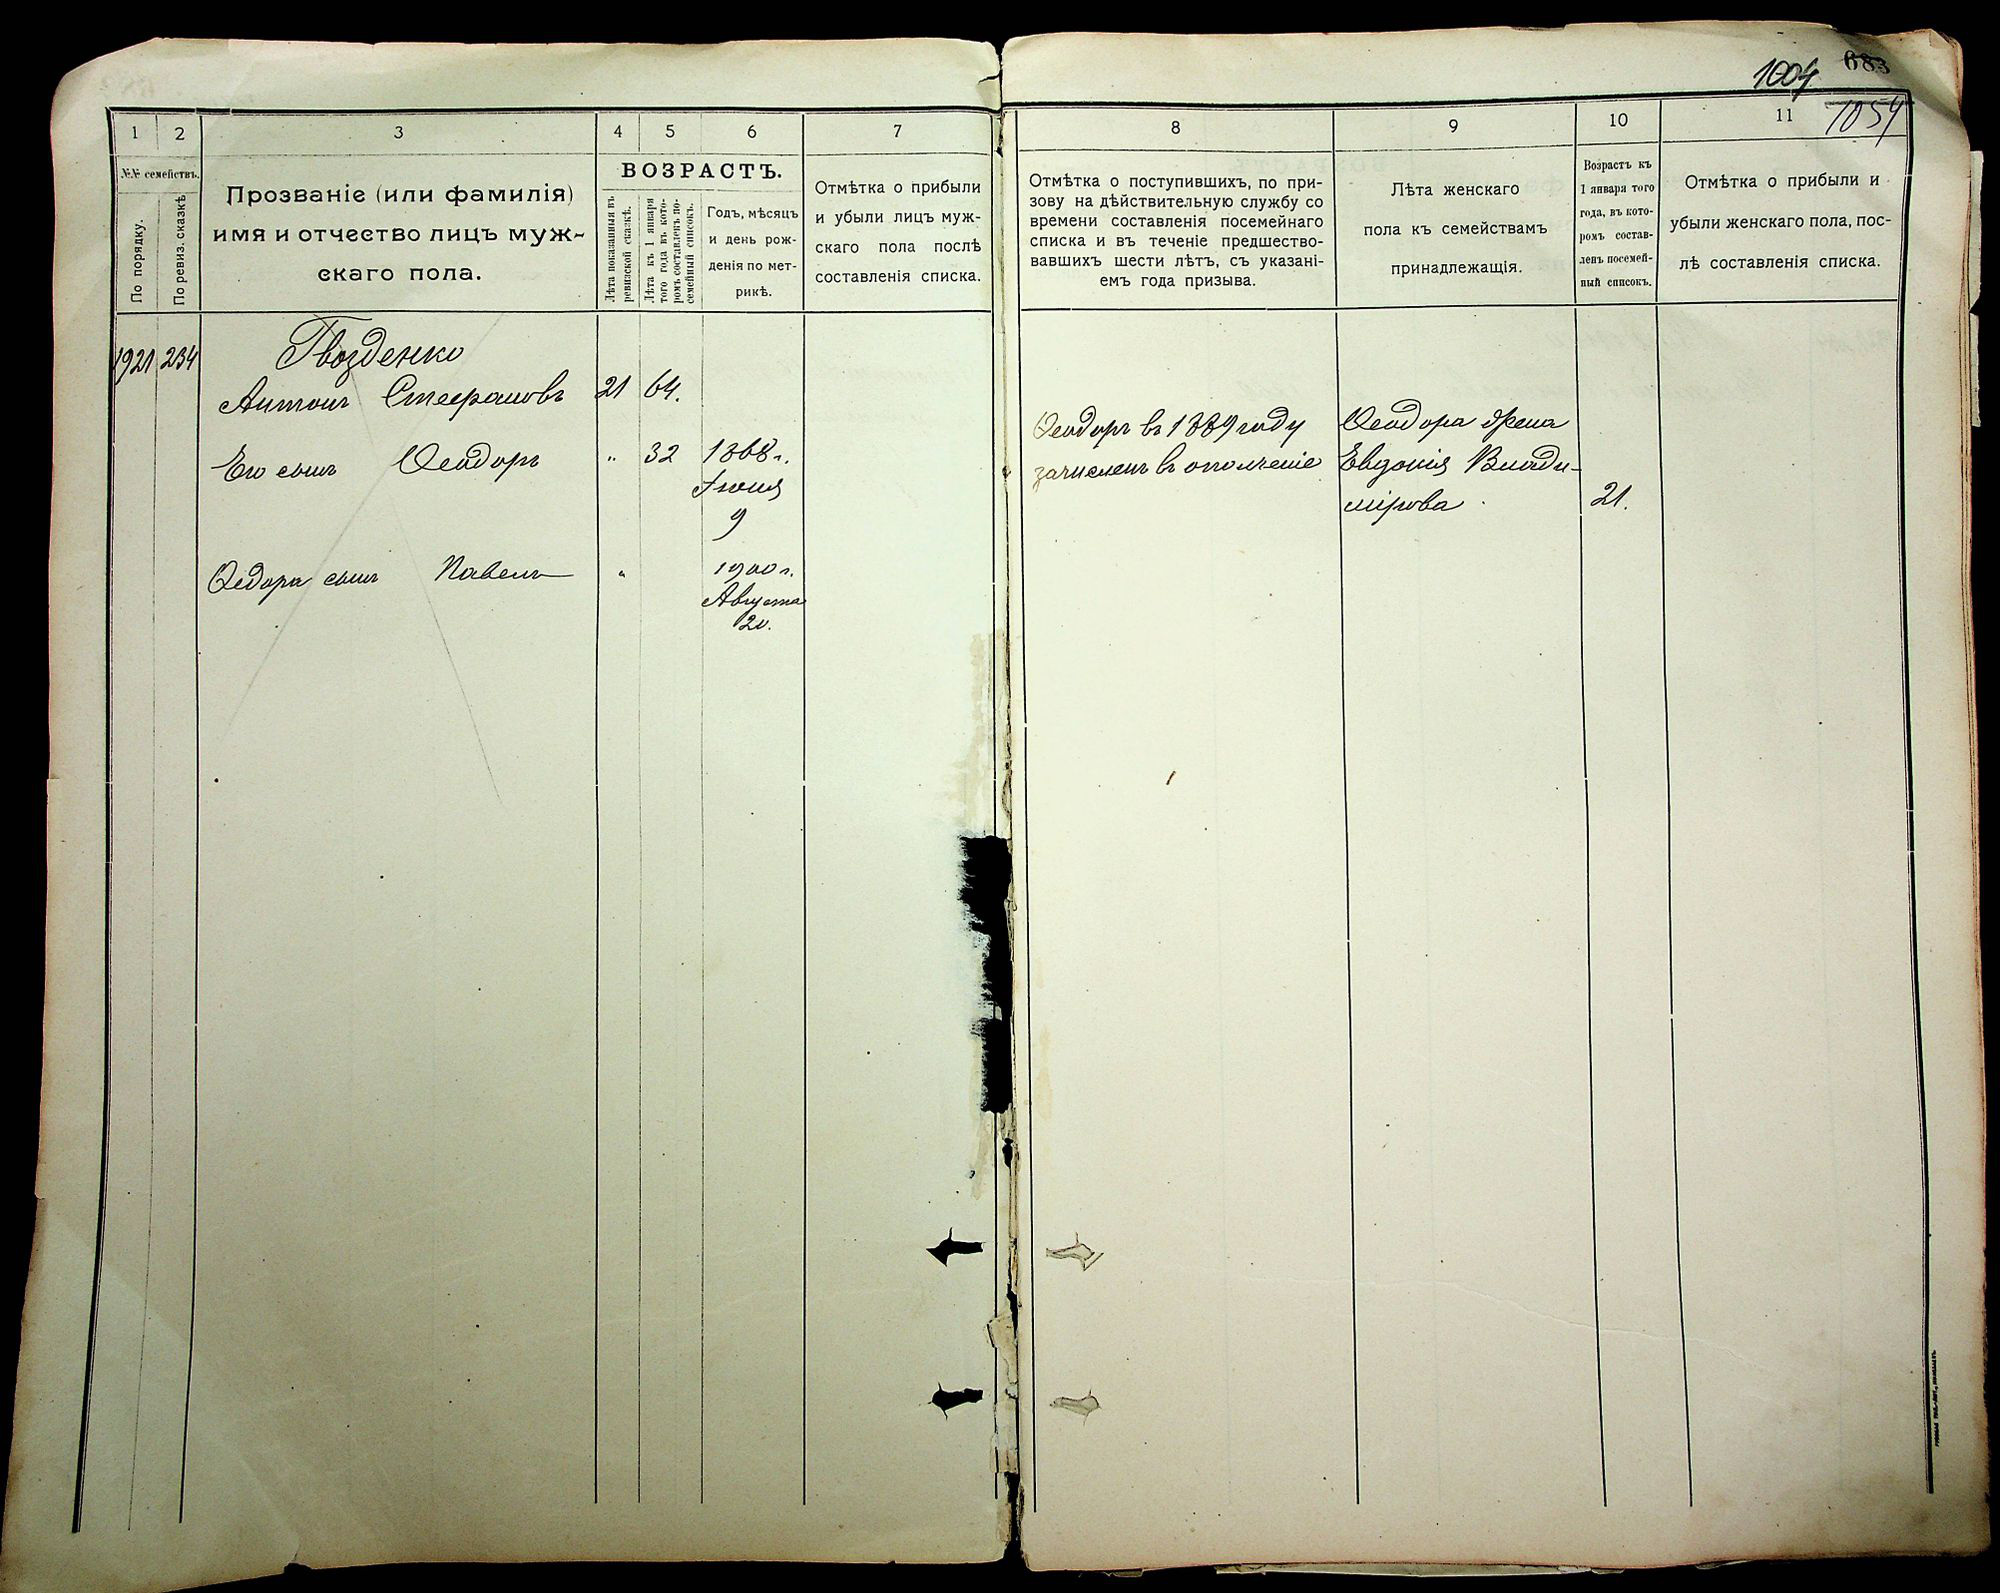 683
1004
1054
1
2
3
4
5
6
7
8
9
10
11
№№ семействъ.
По порядку.
По ревиз. сказкѣ
Прозваніе (или фамилія)
имя и отчество лицъ муж-
скаго пола.
ВОЗРАСТЪ.
Лѣта показанныя въ
ревизской сказкѣ.
Лѣта къ 1 января
того года въ кото-
ромъ составленъ по-
семейный списокъ.
Годъ, мѣсяцъ
и день рож-
денія по мет-
рикѣ.
Отмѣтка о прибыли
и убыли лицъ муж-
скаго пола послѣ
составленія списка.
Отмѣтка о поступившихъ, по при-
зову на дѣйствительную службу со
времени составленія посемейнаго
списка и въ теченіе предшество-
вавшихъ шести лѣтъ, съ указані-
емъ года призыва.
Лѣта женскаго
пола къ семействамъ
принадлежащія.
Возрастъ къ
1 января того
года, въ кото-
ромъ состав-
ленъ посемей-
ный списокъ.
Отмѣтка о прибыли и
убыли женскаго пола, пос-
лѣ составленія списка.
1921 234 Гвозденко
Антонъ Стефановъ 21 64.
Его сынъ Ѳеодоръ " 32 1868 г.
Іюня
9
Ѳедора сынъ Павелъ " 1900 г.
Августа
20.
Ѳеодоръ въ 1889 году
зачисленъ въ ополченіе
Ѳеодора жена
Евдокія Влади-
мірова 21.